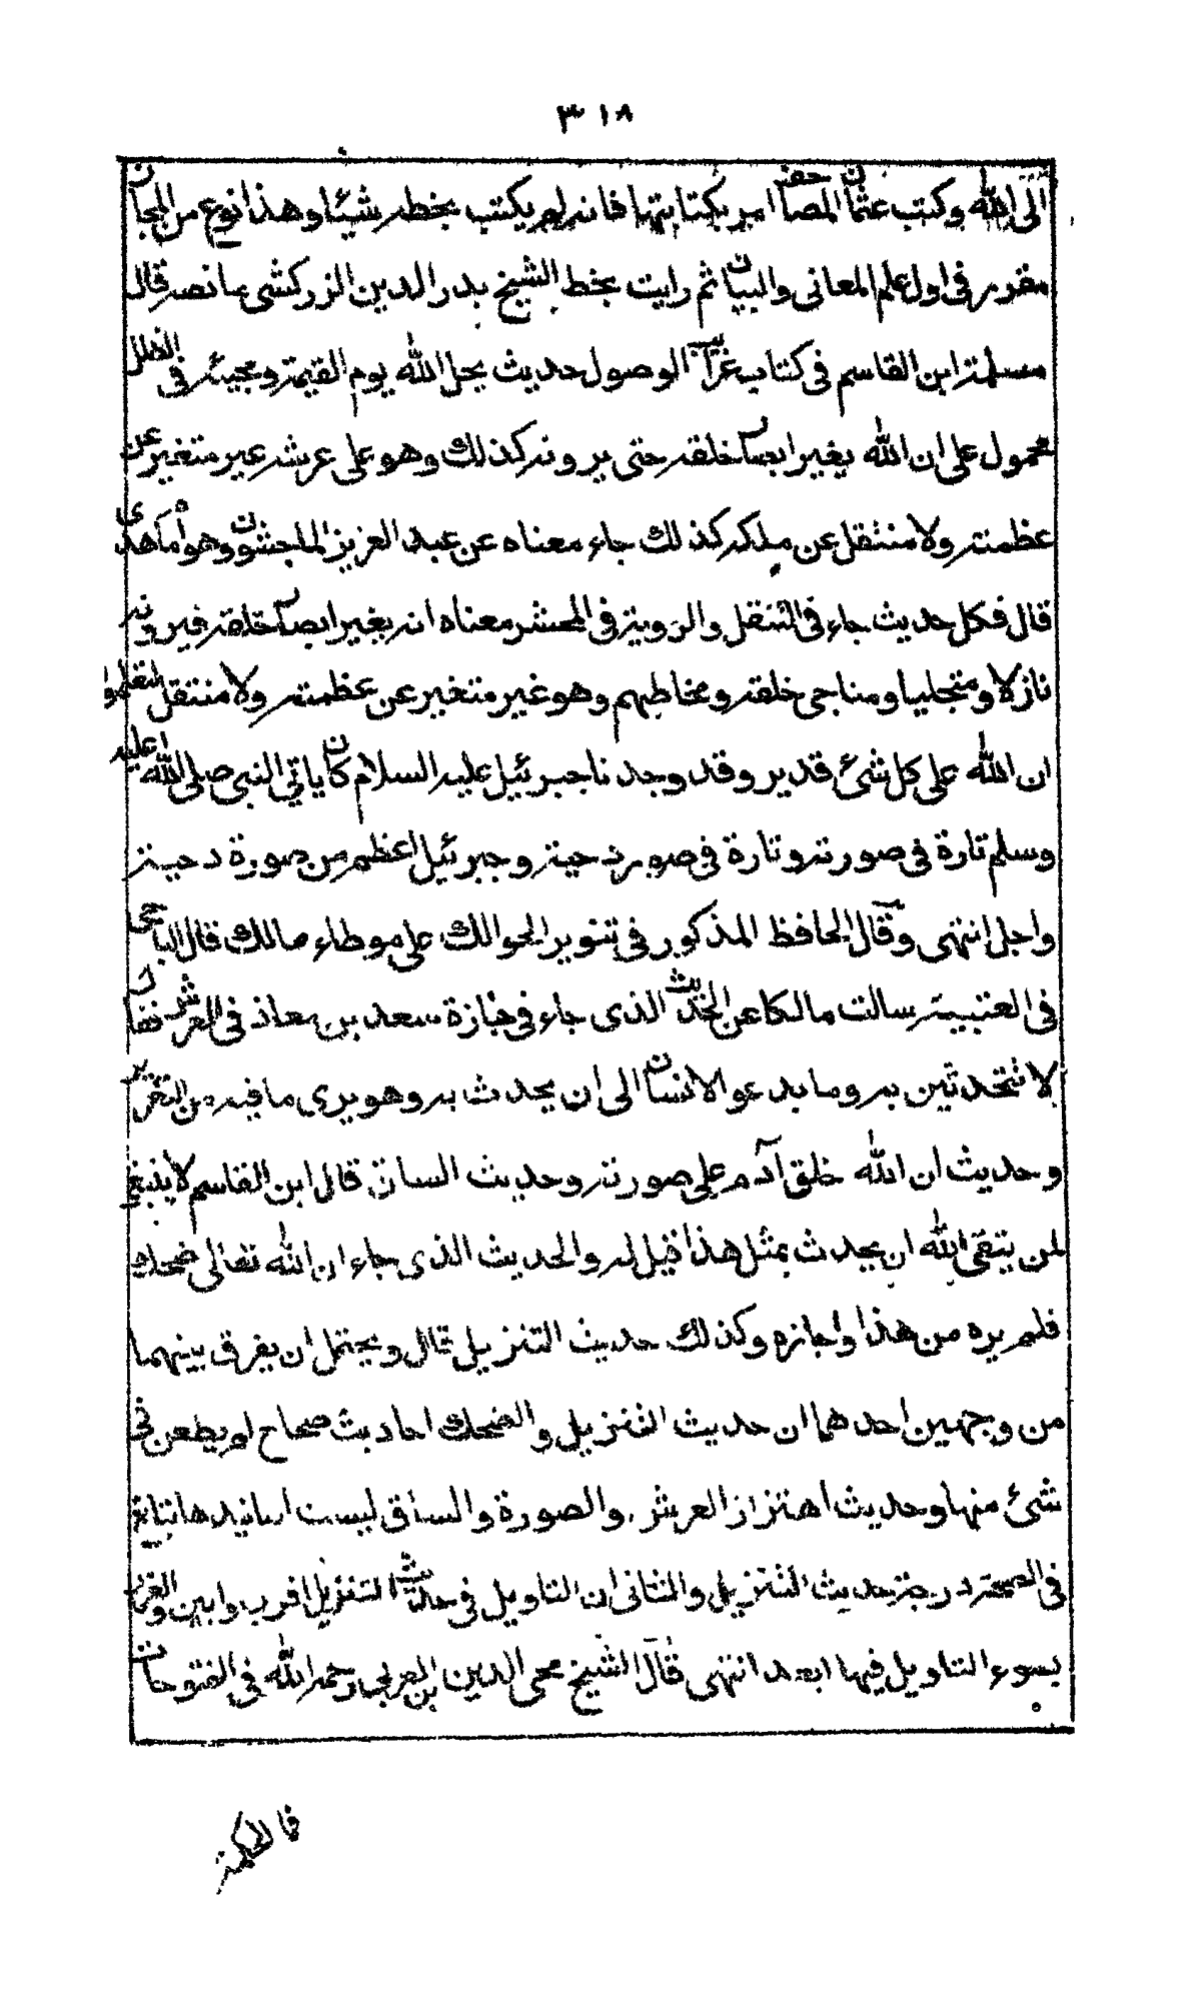 ٣١٨
الى الله وكتب عثمان المصاحف امر بكتابتها فانه لم يكتب بخطه شيئا وهذا نوع من المجاز
مقرر في اول علم المعاني والبيان ثم رايت بخط الشيخ بدر الدين الزركشي ما نصه قال
مسلمة ابن القاسم في كتاب غرائب الوصول حديث يحل الله يوم القيمة ومجيئه في الظلل
محمول على ان الله يغير ابصار خلقه حتى يرونه كذلك وهو على عرشه غير متغير عن
عظمته ولا منتقل عن ملكه كذلك جاء معناه عن عبد العزيز الماجشون وهو امام هدى
قال فكل حديث جاء في التنقل والروية في المحشر معناه انه يغير ابصار خلقه فيرونه
نازلا ومتجليا ومناجي خلقه ومخاطبهم وهو غير متغير عن عظمته ولا منتقل لتعلموا
ان الله على كل شئ قدير وقد وجدنا جبرئيل عليه السلام كان ياتي النبي صلى الله عليه
وسلم تارة في صورته وتارة في صورة دحية وجبرئيل اعظم من صورة دحية
واجل انتهى وقال الحافظ المذكور في تنوير الحوالك على موطاء مالك قال الباجي
في العتبية سالت مالكا عن الحديث الذي جاء في جنازة سعد بن معاذ في العرش فقال
لا تتحدثن به وما يدعو الانسان الى ان يحدث به وهو يرى ما فيه من التغرير
وحديث ان الله خلق آدم على صورته وحديث الساق قال ابن القاسم لا ينبغي
لمن يتقى الله ان يحدث بمثل هذا قيل له والحديث الذي جاء ان الله تعالى ضحك
فلم يره من هذا واجازه وكذلك حديث التنزيل قال ويحتمل ان يفرق بينهما
من وجهين احدهما ان حديث التنزيل والضحك احاديث صحاح لم يطعن في
شئ منها وحديث اهتزاز العرش والصورة والساق ليست اسانيدها تبلغ
في الصحة درجة حديث التنزيل والثاني ان التاويل في حديث التنزيل اقرب وابين والغرر
بسوء التاويل فيها ابعد انتهى قال الشيخ محي الدين بن العربي رحمه الله في الفتوحات
فالحكمة